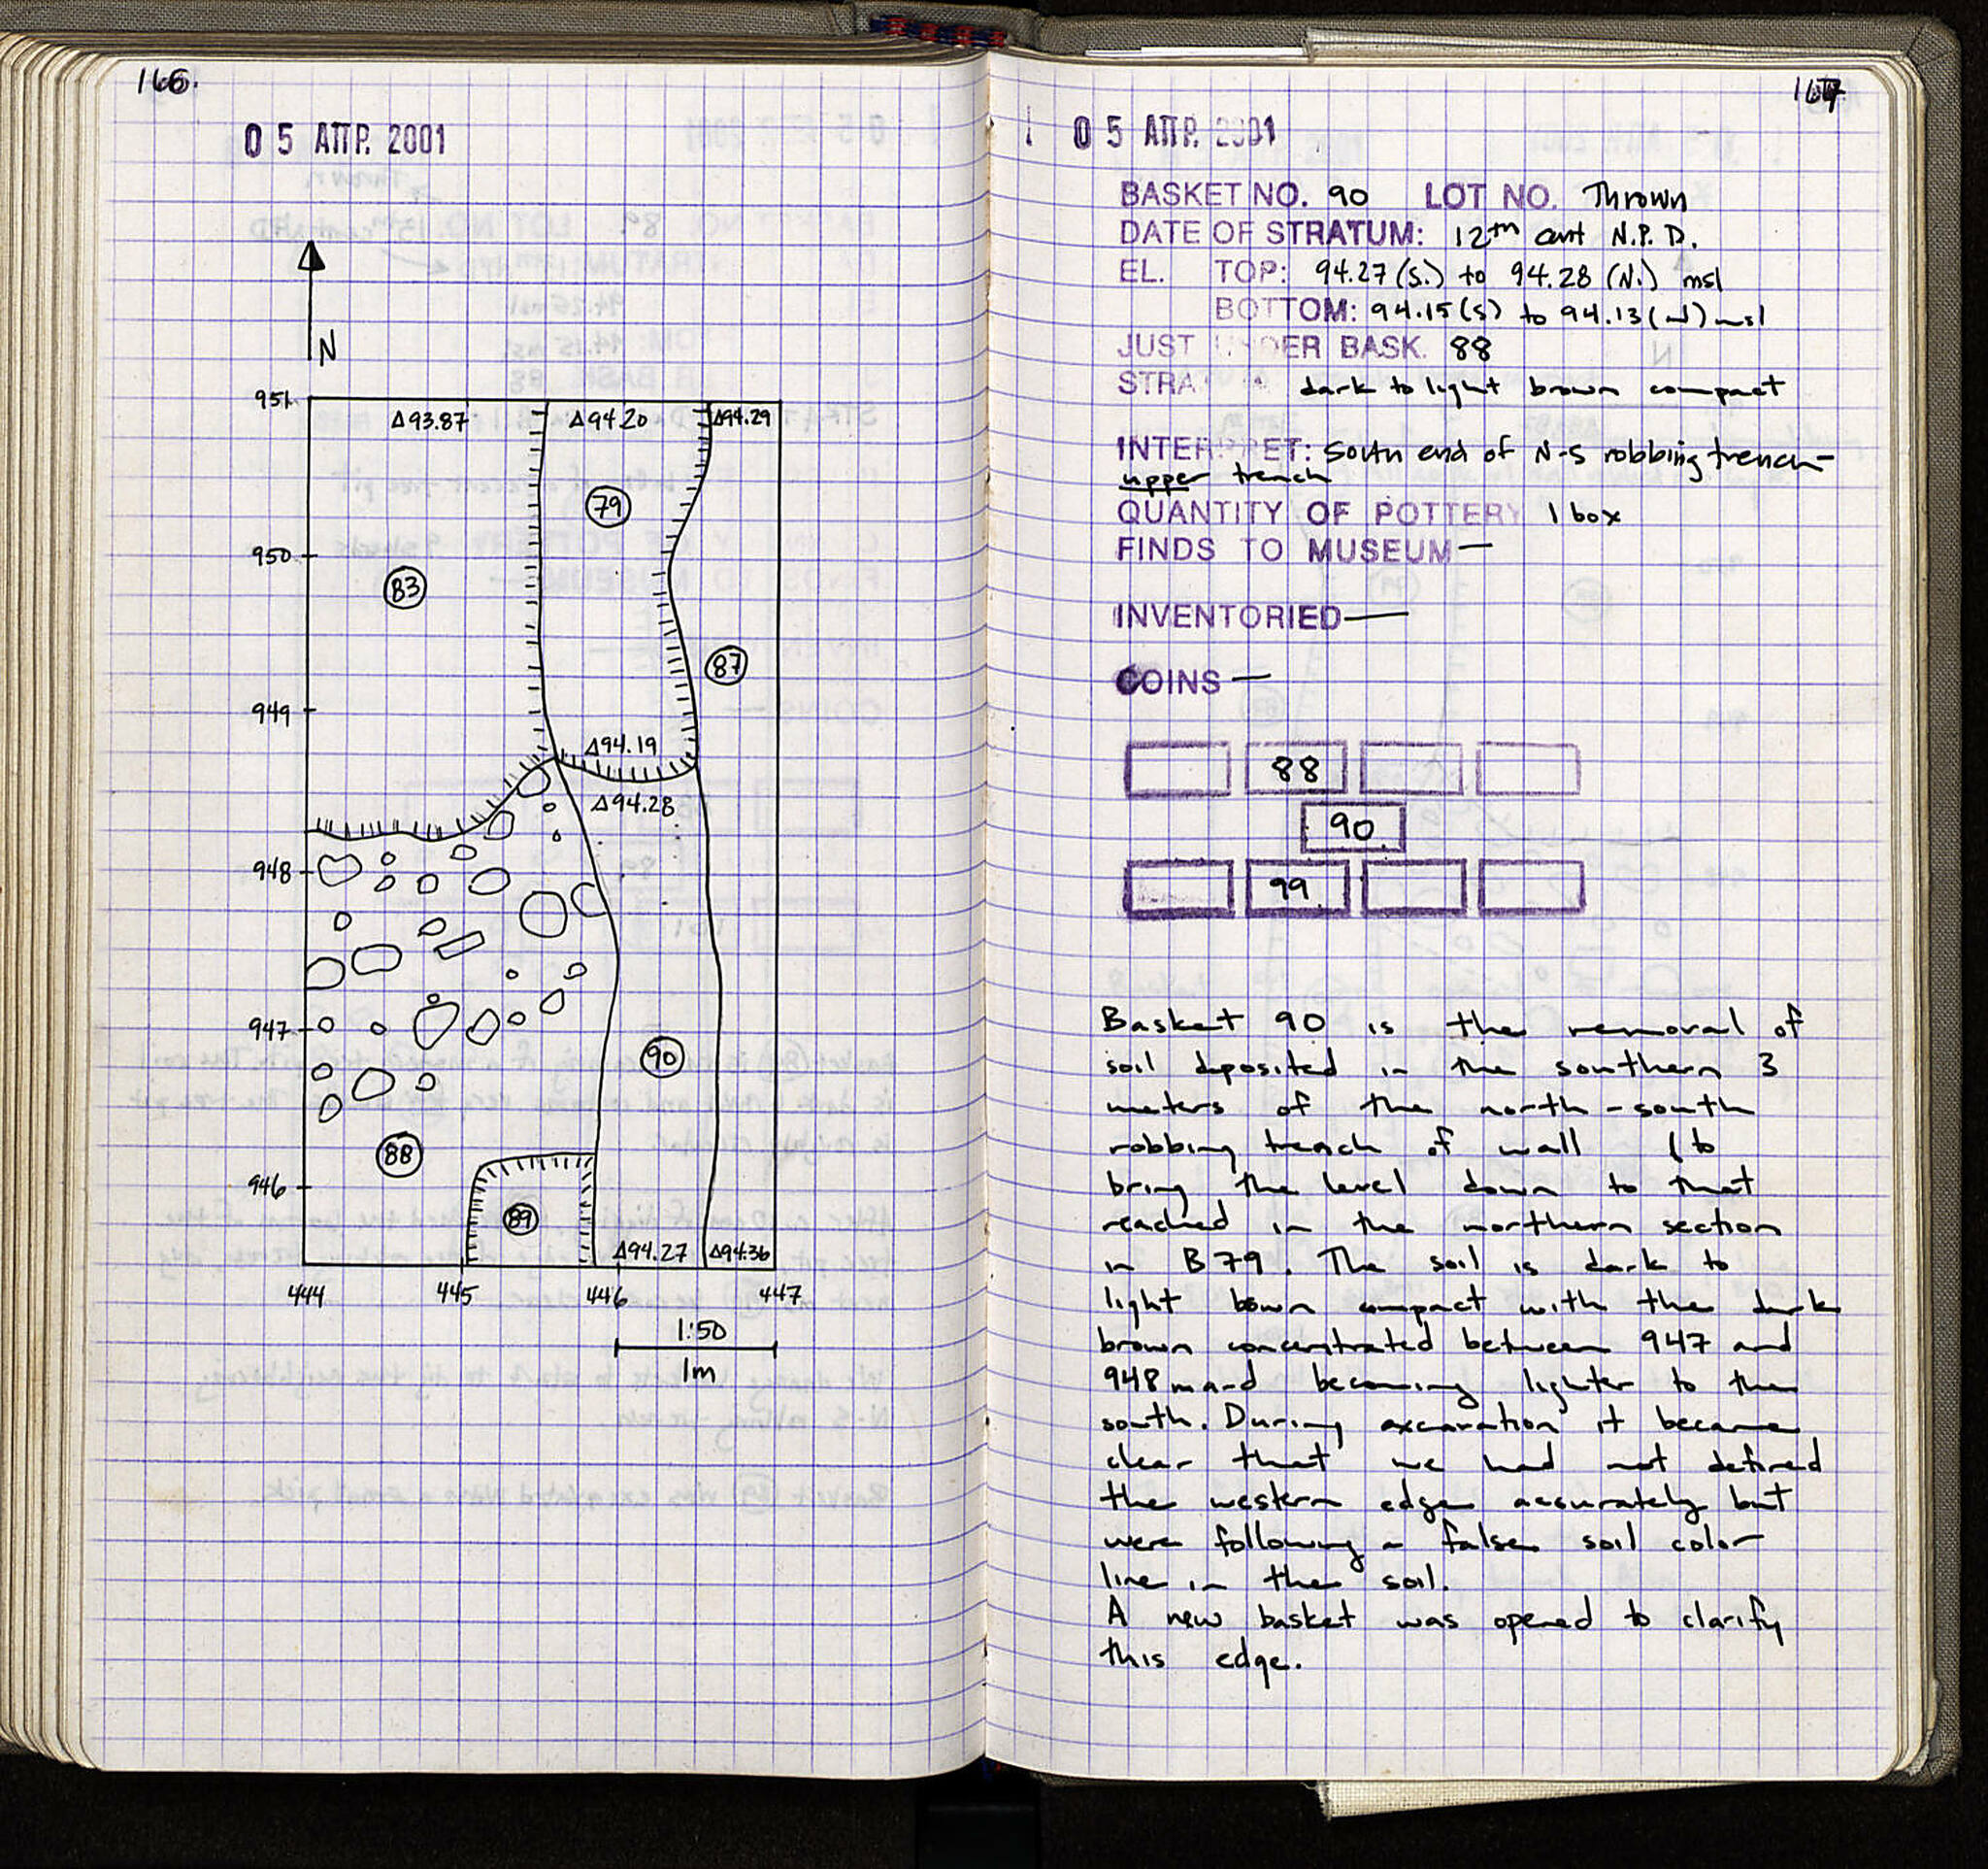 166.
05 ΑΠΡ. 2001
N
951
Δ93.87 Δ94.20 Δ94.29
79
950
83
87
949
Δ94.19
Δ94.28
948
947
90
88
946
89
Δ94.27 Δ94.36
444 445 446 447
1:50
1m
167
05 ΑΠΡ. 2001
BASKET NO. 90 LOT NO. Thrown
DATE OF STRATUM: 12th cent N.P.D.
EL. TOP: 94.27 (S.) to 94.28 (N.) msl
BOTTOM: 94.15 (S) to 94.13 (N) msl
JUST UNDER BASK. 88
STRA dark to light brown compact
INTERPRET: South end of N-S robbing trench-
upper trench
QUANTITY OF POTTERY 1 box
FINDS TO MUSEUM —
INVENTORIED —
COINS —
88
90
99
Basket 90 is the removal of
soil deposited in the southern 3
meters of the north-south
robbing trench of wall 1 to
bring the level down to that
reached in the northern section
in B79. The soil is dark to
light bown compact with the dark
brown concentrated between 947 and
948 m and becoming lighter to the
south. During excavation it became
clear that we had not defined
the western edge accurately but
were following a false soil color
line in the soil.
A new basket was opened to clarify
this edge.